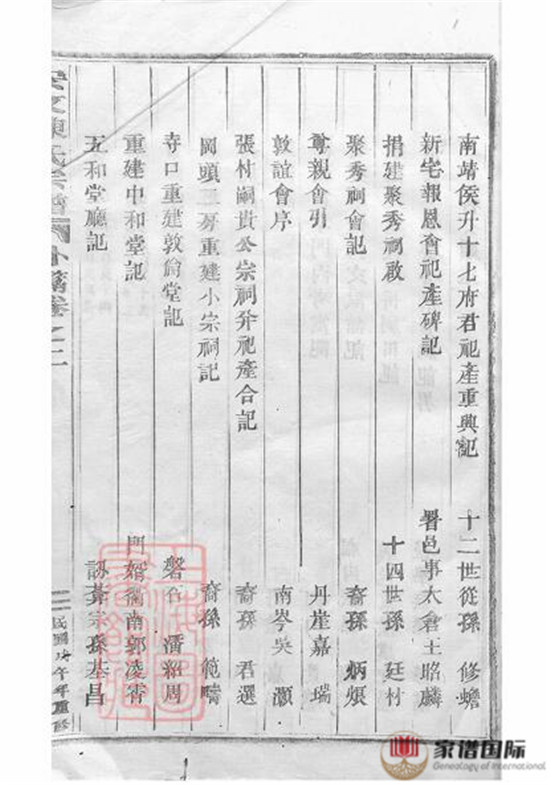 南靖侯升十七府君祀產重興記　十二世從孫　修蟾
新宅報恩會祀產碑記　署邑事太倉王昭麟
捐建聚秀祠啟　十四世孫　廷材
聚秀祠會記　裔孫　炳煅
尊親會引　丹崖嘉瑞
敦誼會序　南岑吳灝
張村嗣貴公宗祠并祀產合記　裔孫　君選
岡頭三房重建小宗祠記　裔孫　範疇
寺口重建敦倫堂記　磐邑　潘紹周
重建中和堂記　門婿衢南郭凌霄
五和堂廳記　宗孫基昌
陳氏宗譜　外篇卷之二
民國　午年重修
家谱国际
Genealogy of International